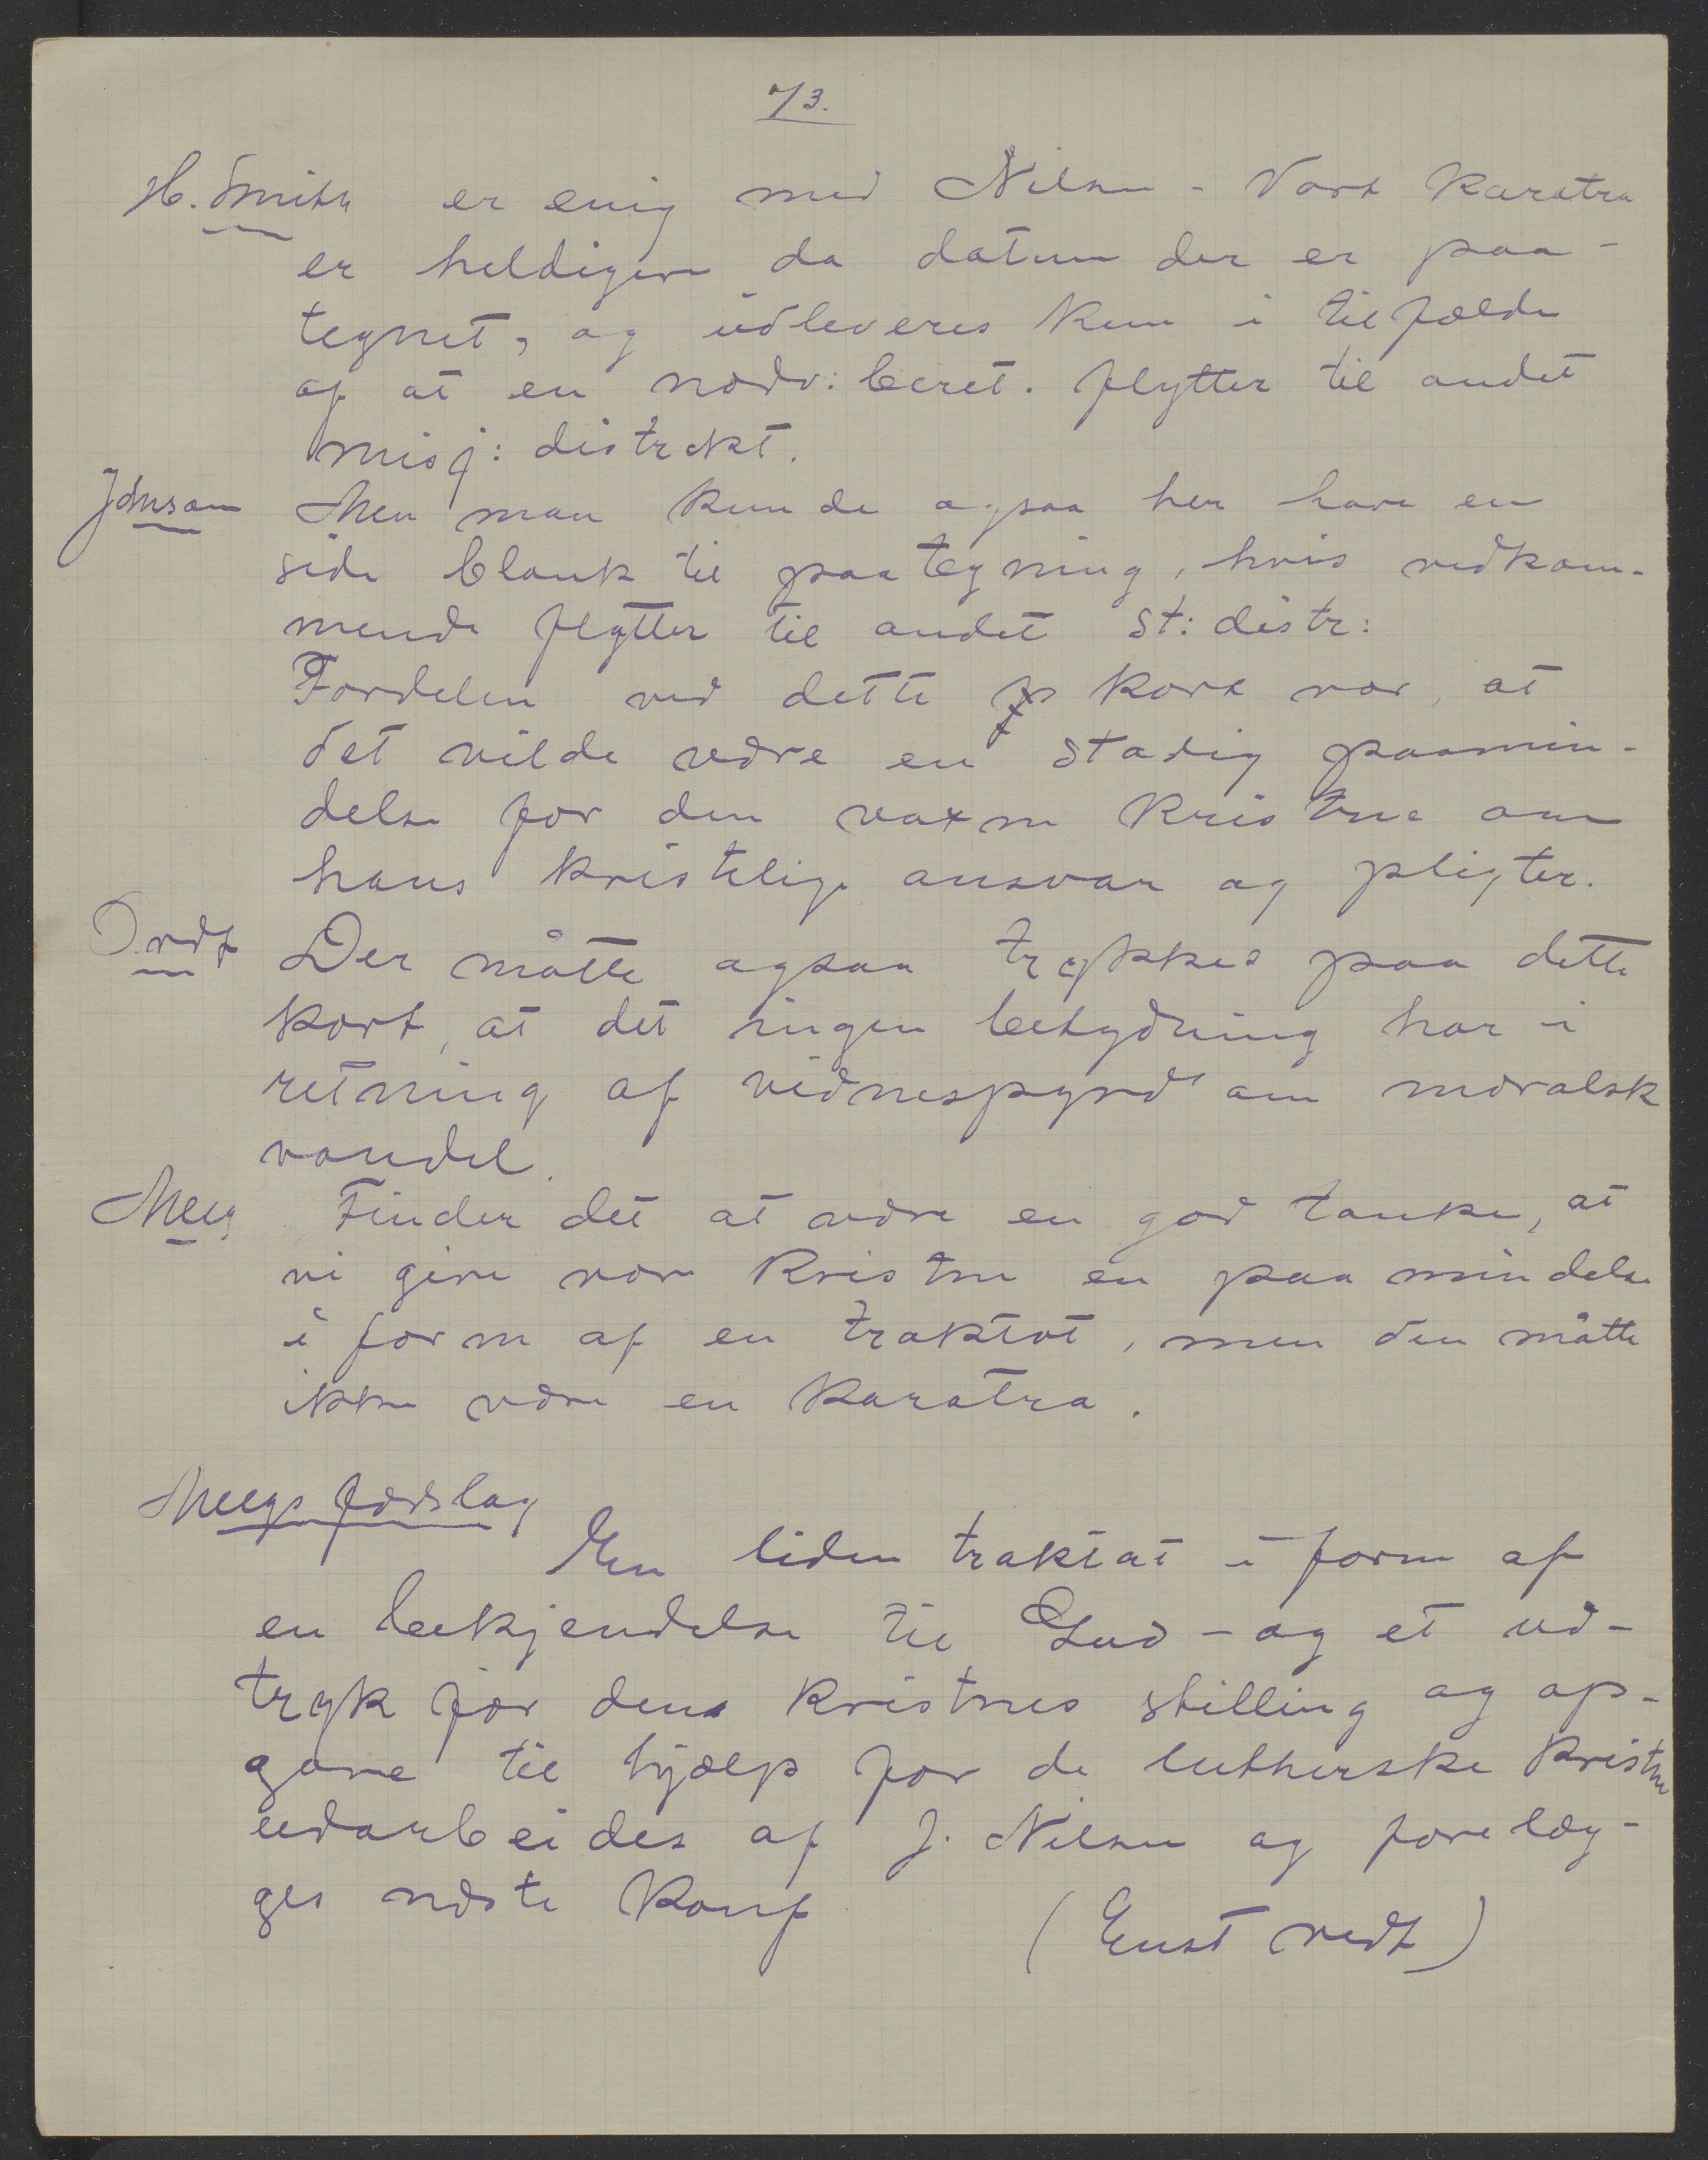 73.
H. Smith er enig med Nilsen - Vort karatra
er heldigere da datum der er paa-
tegnet, og udleveres kun i tilfælde
af at en nadv: beret. flytter til andet
misj: distrikt.
Johnson Men man kunde ogsaa her have en
side blank til paategning, hvis vedkom-
mende flytter til andet st: distr:
Fordelen ved dette kort var, at
det vilde være en stadig paamin-
delse for den voxne kristne om
hans kristelige ansvar og pligter.
Ordf Der måtte ogsaa trykkes paa dette
kort, at det ingen betydning har i
retning af vidnespyrd om moralsk
vandel.
Meeg Finder det at være en god tanke, at
vi give vore kristne en paamindelse
i form af en traktat, men den måtte
ikke være en karatra.
Meegs forslag
En liden traktat i form af
en bekjendelse til Gud - og et ud-
tryk for den kristnes stilling og op-
gave til hjælp for de lutherske kristne
udarbeides af J. Nilsen og forelæg-
ges næste Konf
(Enst vedt)